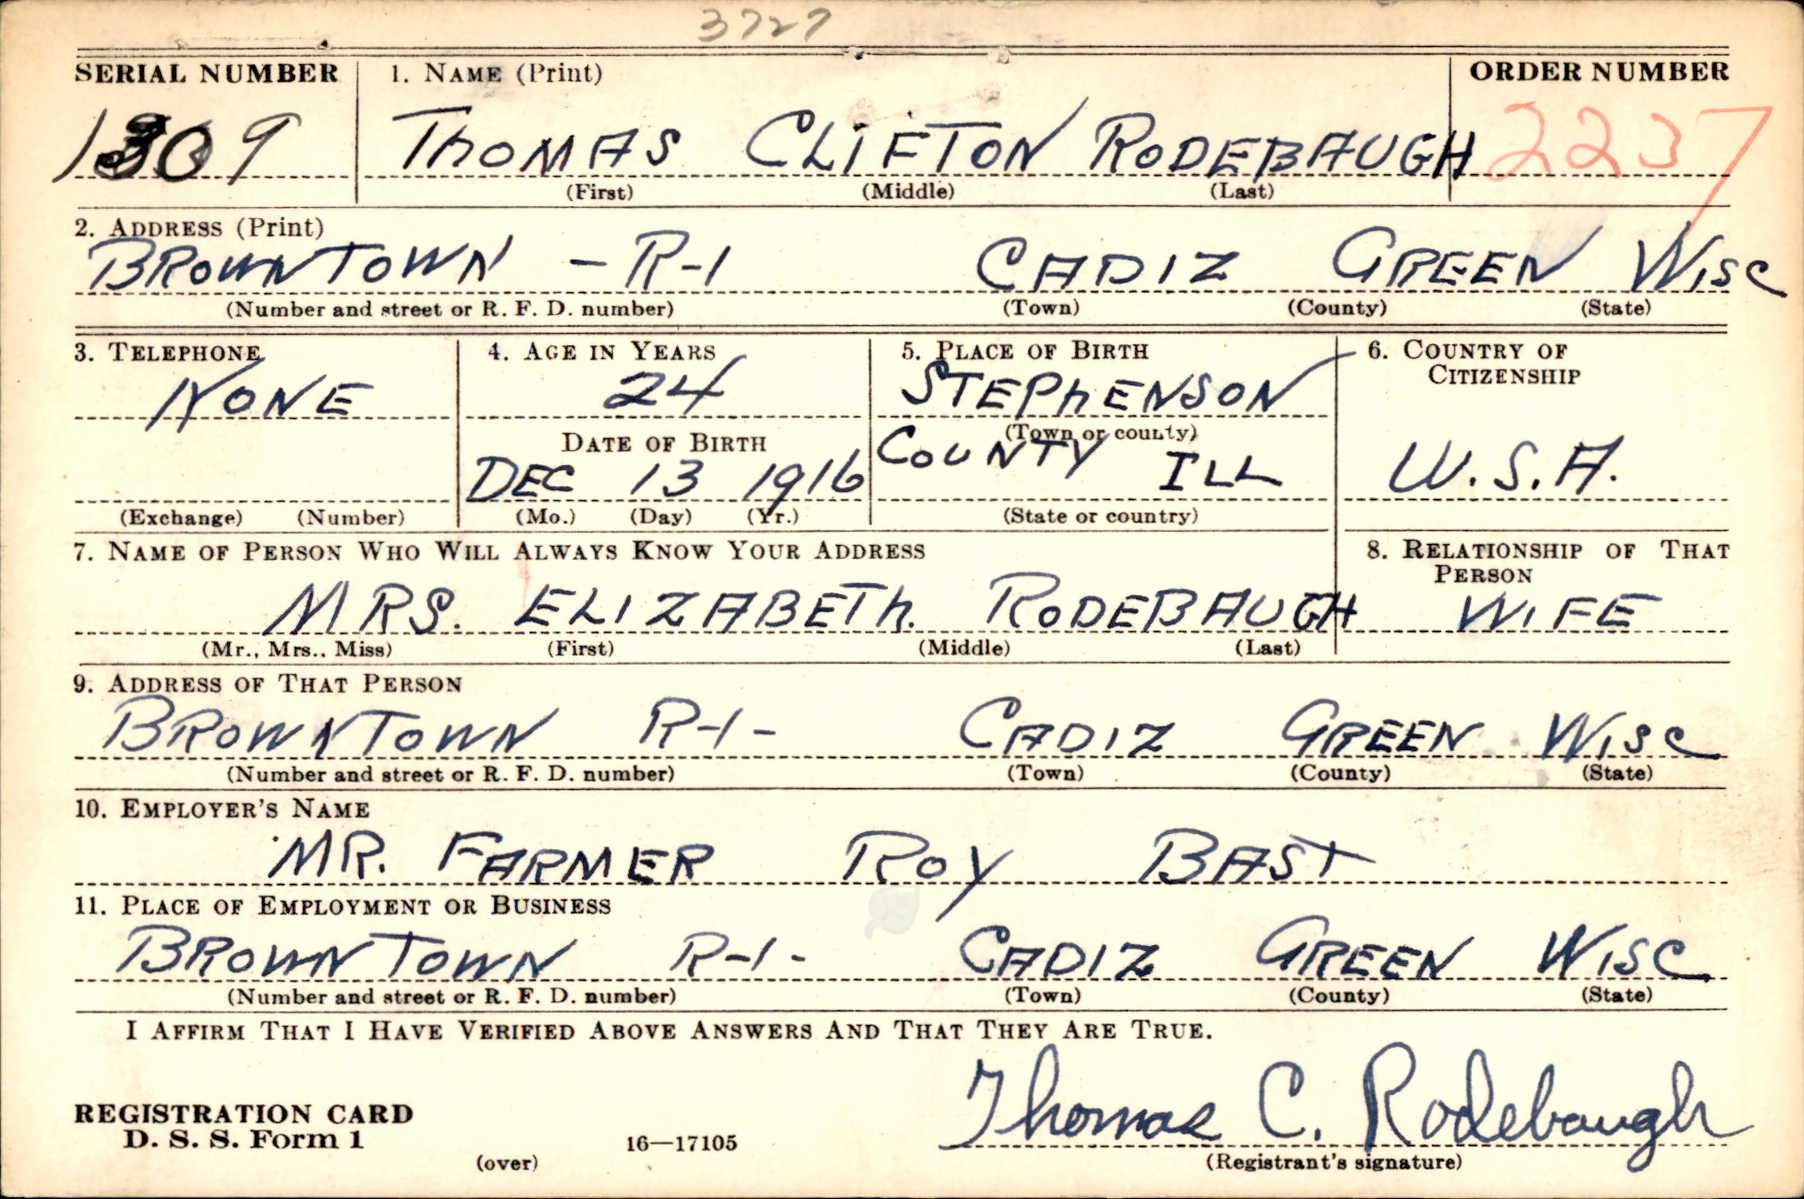 3727
SERIAL NUMBER 1. NAME (Print) ORDER NUMBER
1309 THOMAS CLIFTON RODEBAUGH 2237
(First) (Middle) (Last)
2. ADDRESS (Print)
BROWNTOWN - R-1 CADIZ GREEN WISC
(Number and street or R. F. D. number) (Town) (County) (State)
3. TELEPHONE 4. AGE IN YEARS 5. PLACE OF BIRTH 6. COUNTRY OF
CITIZENSHIP
NONE 24 STEPHENSON
(Town or county)
DATE OF BIRTH COUNTY
DEC 13 1916 ILL U.S.A.
(Exchange) (Number) (Mo.) (Day) (Yr.) (State or country)
7. NAME OF PERSON WHO WILL ALWAYS KNOW YOUR ADDRESS 8. RELATIONSHIP OF THAT
PERSON
MRS. ELIZABETH RODEBAUGH WIFE
(Mr., Mrs., Miss) (First) (Middle) (Last)
9. ADDRESS OF THAT PERSON
BROWNTOWN R-1- CADIZ GREEN WISC
(Number and street or R. F. D. number) (Town) (County) (State)
10. EMPLOYER'S NAME
MR. FARMER ROY BAST
11. PLACE OF EMPLOYMENT OR BUSINESS
BROWNTOWN R-1- CADIZ GREEN WISC
(Number and street or R. F. D. number) (Town) (County) (State)
I AFFIRM THAT I HAVE VERIFIED ABOVE ANSWERS AND THAT THEY ARE TRUE.
Thomas C. Rodebaugh
REGISTRATION CARD
D. S. S. Form 1 16—17105
(over) (Registrant's signature)